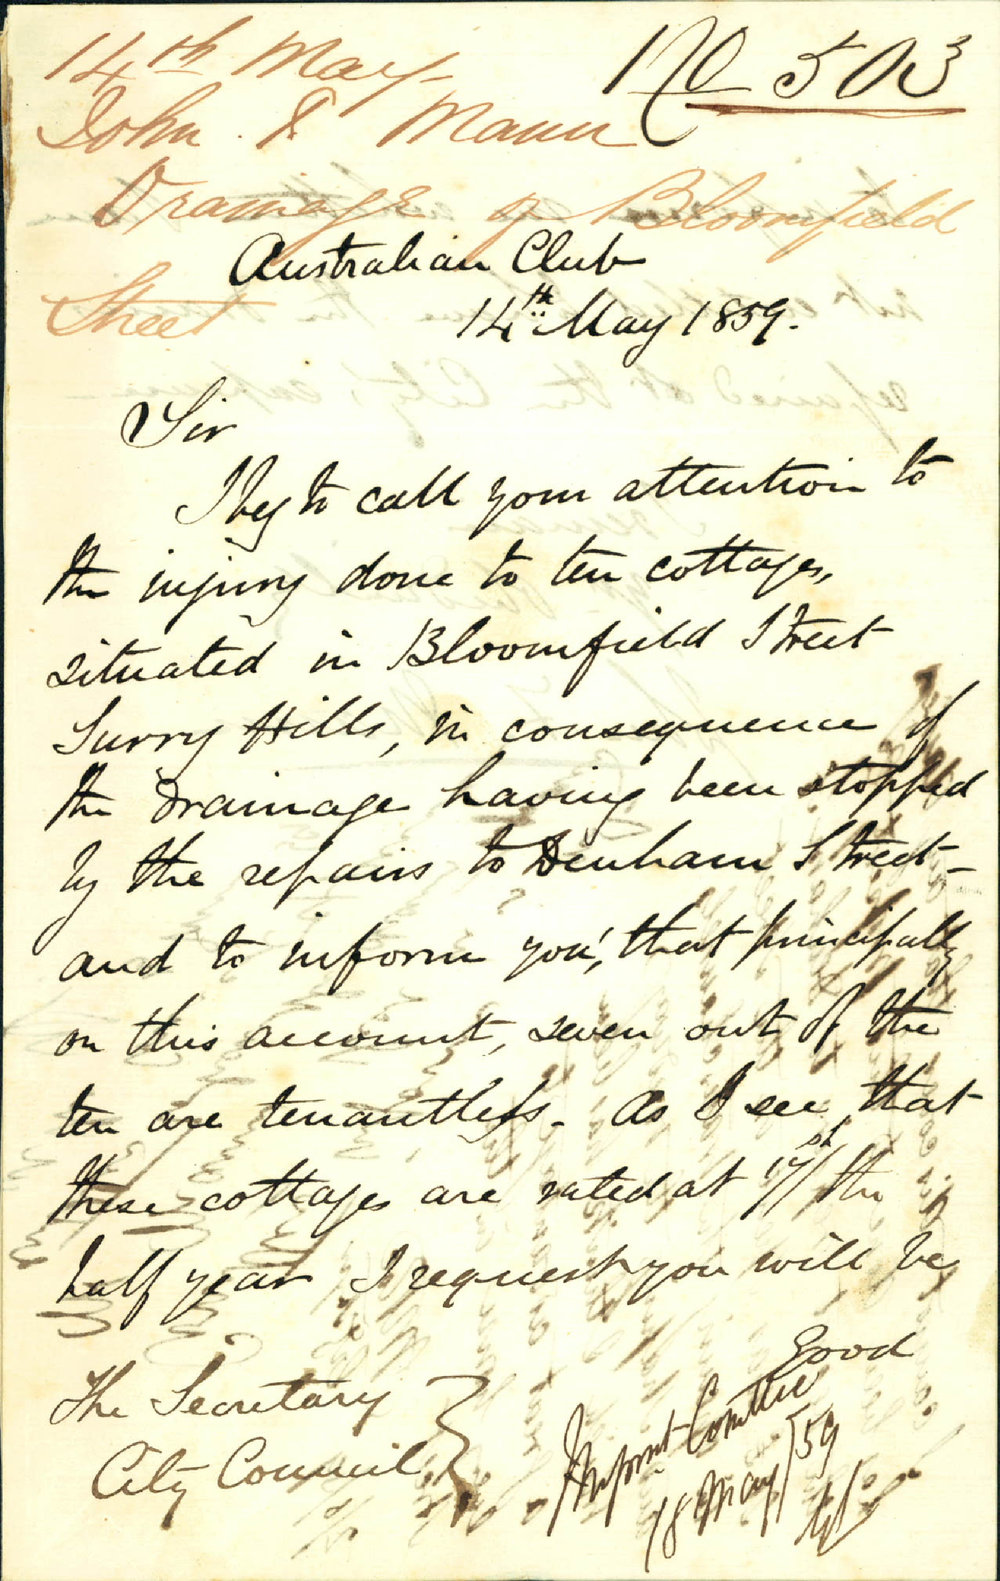 14th May
No 503
John F Mann
Drainage of Bloomfield
Street
Australian Club
14th May 1859.
Sir
I beg to call your attention to
the injury done to ten cottages,
situated in Bloomfield Street
Surry Hills, in consequence of
the drainage having been stopped
by the repairs to Denham Street –
and to inform you, that principally
on this account, seven out of the
ten are tenantless. As I see that
these cottages are rated at 17/ the
half year I request you will be
good
The Secretary
City Council
Improvt Comttee
18 May/59